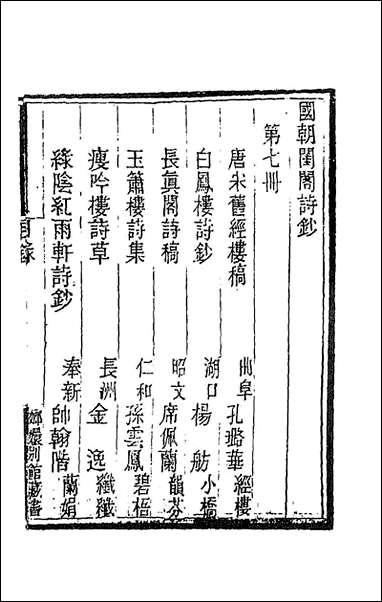 國朝閨閣詩鈔
第七冊
唐宋舊經樓稿 曲阜 孔璐華 經樓
白鳳樓詩鈔 湖口 楊舫 小橋
長眞閣詩稿 昭文 席佩蘭 韻芬
玉簫樓詩集 仁和 孫雲鳳 碧梧
瘦吟樓詩草 長洲 金逸 纖纖
綠陰紅雨軒詩鈔 奉新 帥翰階 蘭娟
目錄
嫏嬛別館藏書